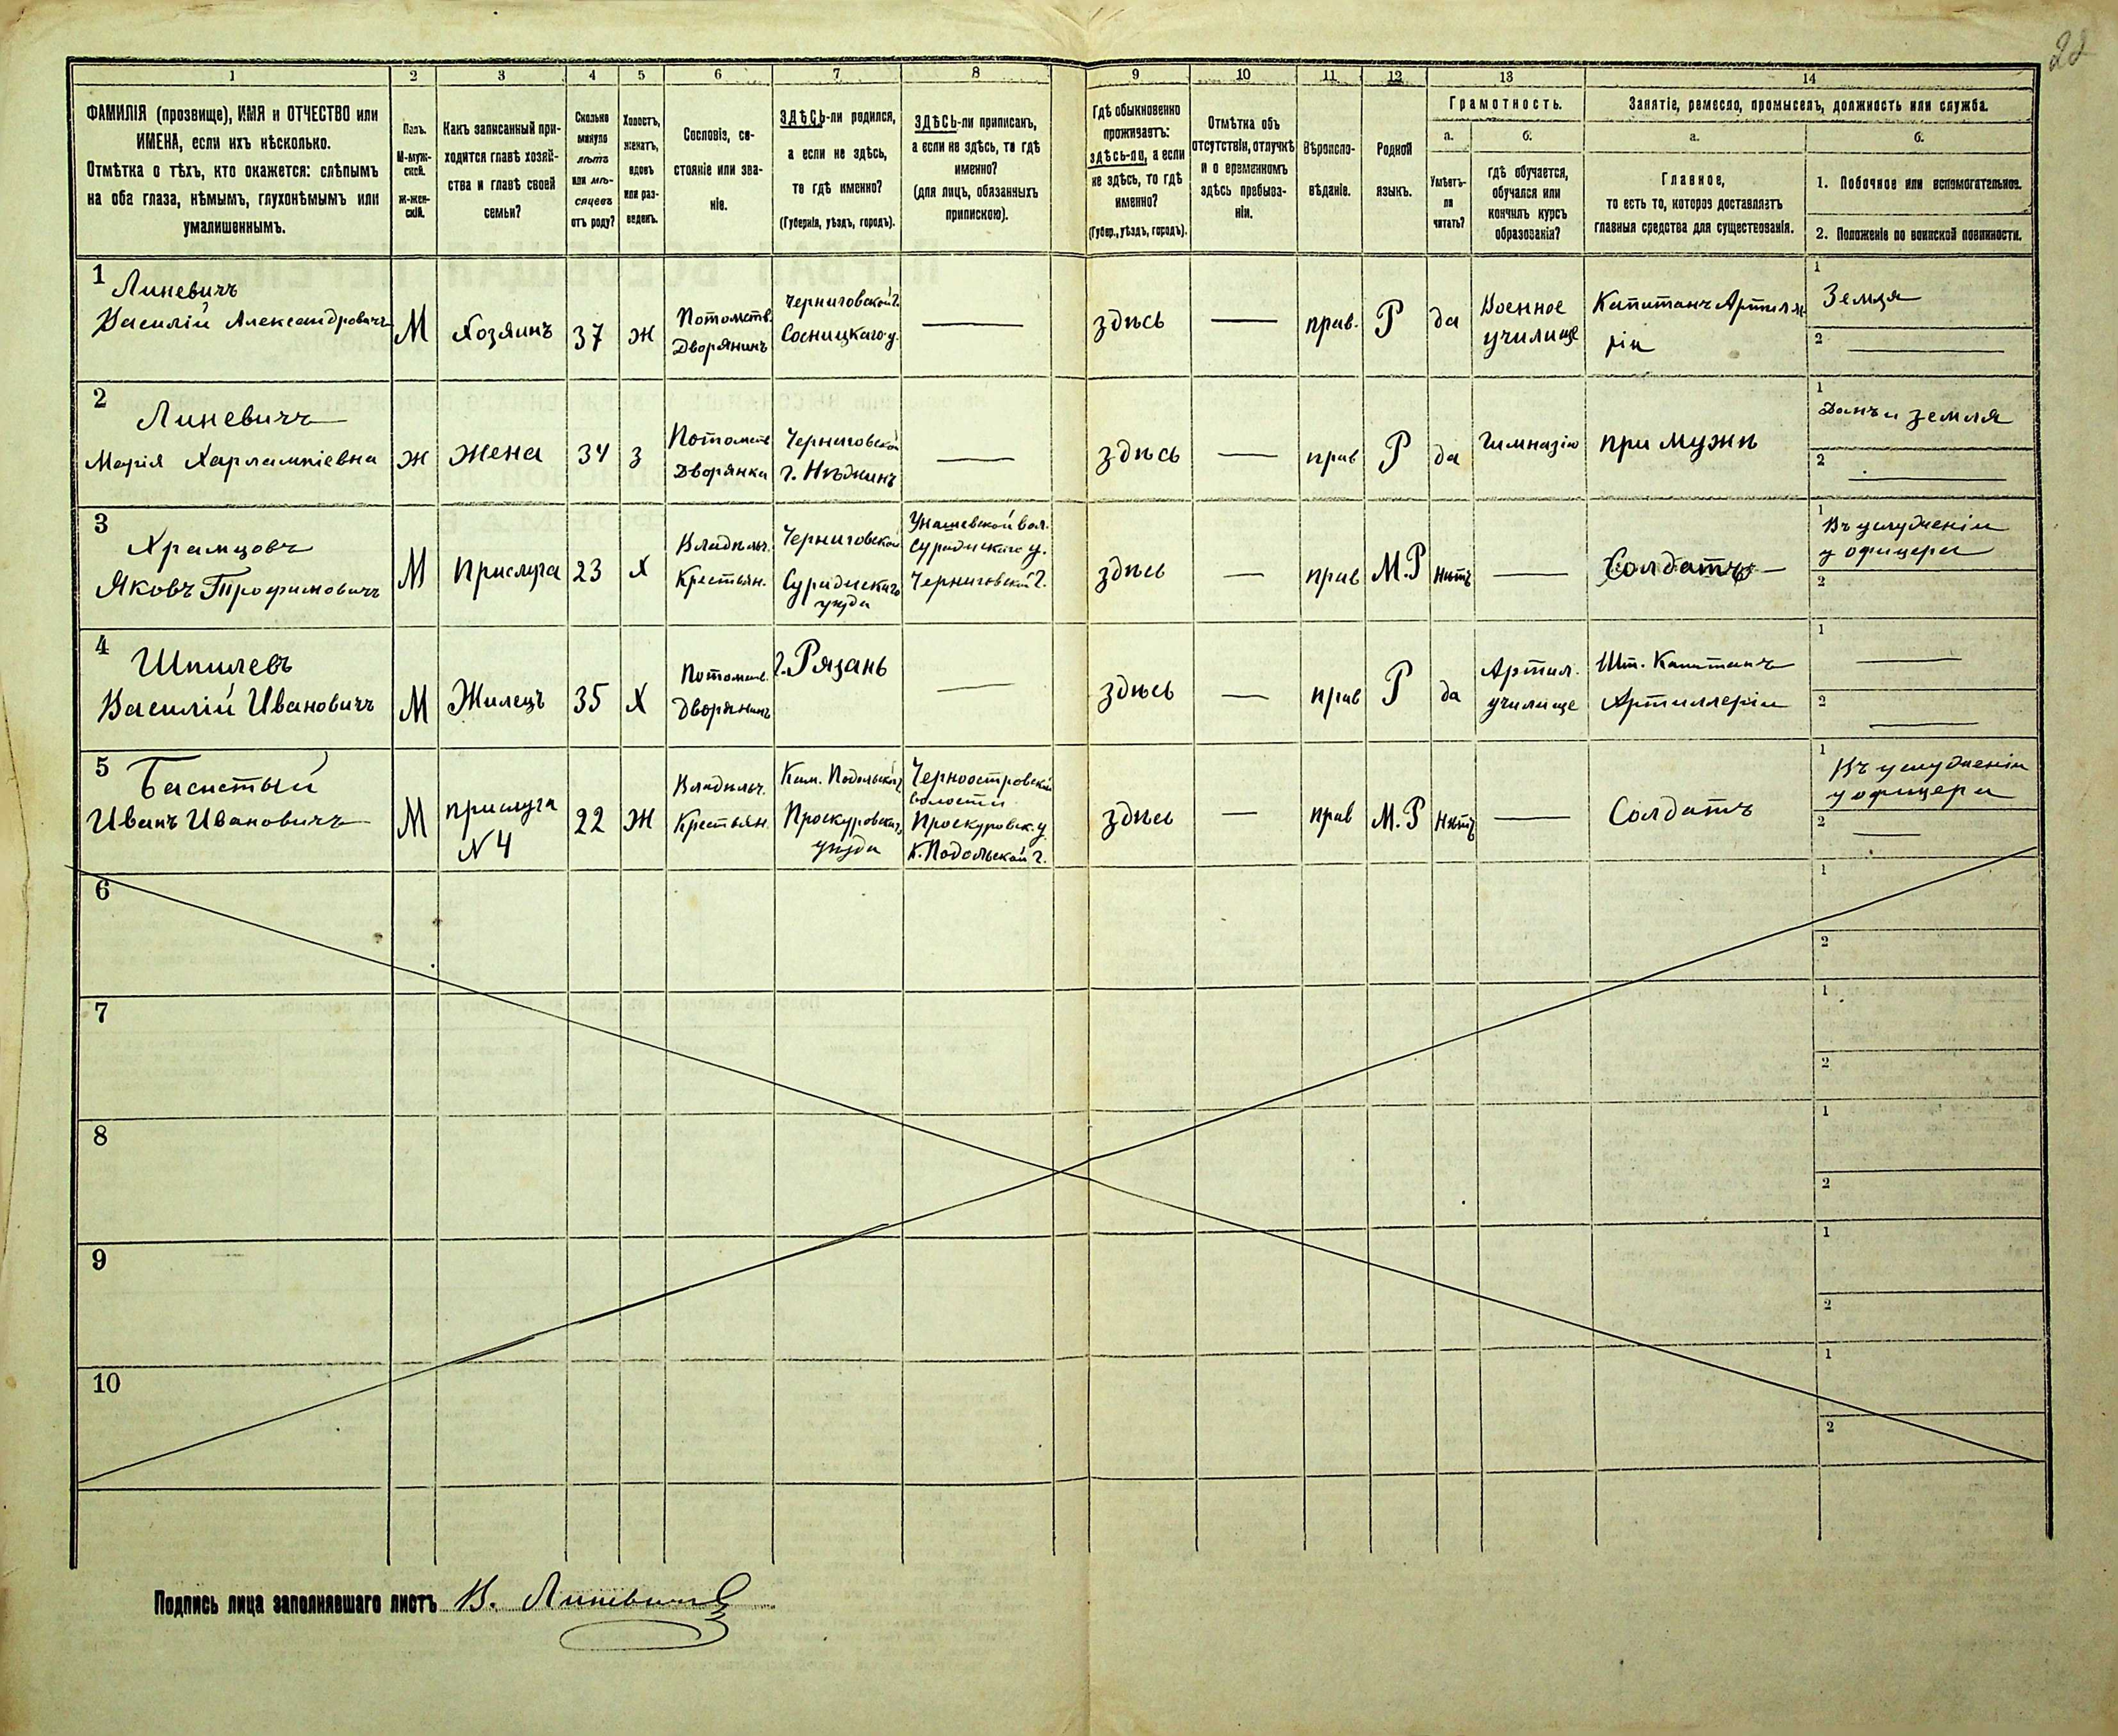 22
1 2 3 4 5 6 7 8 9 10 11 12 13 14
ФАМИЛІЯ (прозвище), ИМЯ и ОТЧЕСТВО или
ИМЕНА, если ихъ нѣсколько.
Отмѣтка о тѣхъ, кто окажется: слѣпымъ
на оба глаза, нѣмымъ, глухонѣмымъ или
умалишеннымъ.
Полъ.
М-муж-
ской.
Ж-жен-
скій.
Какъ записанный при-
ходится главѣ хозяй-
ства и главѣ своей
семьи?
Сколько
минуло
лѣтъ
или мѣ-
сяцевъ
отъ роду?
Холостъ,
женатъ,
вдовъ
или раз-
веденъ.
Сословіе, со-
стояніе или зва-
ніе.
ЗДѢСЬ-ли родился,
а если не здѣсь,
то гдѣ именно?
(Губернія, уѣздъ, городъ).
ЗДѢСЬ-ли приписанъ,
а если не здѣсь, то гдѣ
именно?
(для лицъ, обязанныхъ
припискою).
Гдѣ обыкновенно
проживаетъ:
здѣсь-ли, а если
не здѣсь, то гдѣ
именно?
(Губер., уѣздъ, городъ).
Отмѣтка объ
отсутствіи, отлучкѣ
и о временномъ
здѣсь пребыва-
ніи.
Вѣроиспо-
вѣданіе.
Родной
языкъ.
Грамотность.
а.
Умѣетъ-
ли
читать?
б.
гдѣ обучается,
обучался или
кончилъ курсъ
образованія?
Занятіе, ремесло, промыселъ, должность или служба.
а.
Главное,
то есть то, которое доставляетъ
главныя средства для существованія.
б.
1. Побочное или вспомогательное.
2. Положеніе по воинской повинности.
1
Линевичъ
Василій Александровичъ
М
Хозяинъ
37
Ж
Потомств.
Дворянинъ
Черниговской г.
Сосницкаго у.
—
здѣсь
—
прав.
Р
да
Военное
училище
Капитанъ Артилле
ріи
1
Земля
2
—
2
Линевичъ
Марія Харлампіевна
Ж
Жена
34
З
Потомств
Дворянка
Черниговской
г. Нѣжинъ
—
здѣсь
—
прав
Р
да
Гимназію
при мужѣ
1
Домъ и земля
2
—
3
Храмцовъ
Яковъ Трофимовичъ
М
Прислуга
23
Х
Владѣльч.
Крестьян.
Черниговской
Суражскаго
уѣзда
вол.
Суражскаго у.
Черниговской г.
здѣсь
—
прав
М.Р
Нѣтъ
—
Солдатъ
1
Въ услуженіи
у офицера
2
4
Шпилевъ
Василій Ивановичъ
М
Жилецъ
35
Х
Потомств.
Дворянинъ
г. Рязань
—
здѣсь
—
прав
Р
да
Артил.
училище
Шт. Капитанъ
Артиллеріи
1
—
2
—
5
Басистый
Иванъ Ивановичъ
М
прислуга
N 4
22
Ж
Владѣльч.
Крестьян.
Кам. Подольской г.
Проскуровскаго
уѣзда
Черноостровской
волости
Проскуровск. у.
К. Подольской г.
здѣсь
—
прав
М.Р
Нѣтъ
—
Солдатъ
1
Въ услуженіи
у офицера
2
—
6
1
2
7
1
2
8
1
2
9
1
2
10
1
2
Подпись лица заполнявшаго листъ В. Линевичъ